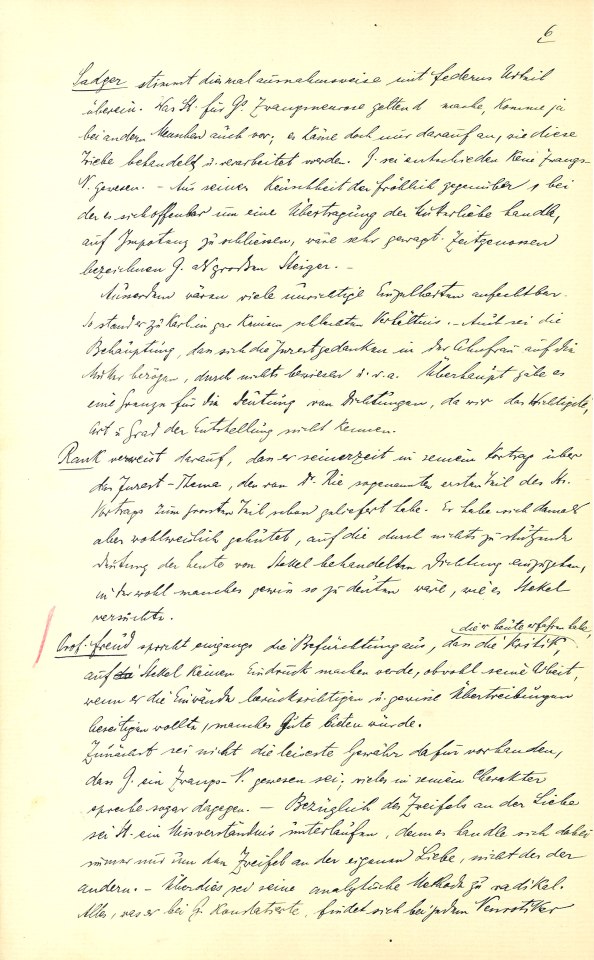 6
Sadger stimmt diesmal ausnahmsweise mit Federns Urteil
überein. Was St. für G's Zwangsneurose geltend mache, komme ja
bei andern Menschen auch vor; es käme doch nur darauf an, wie diese
Triebe behandelt u. verarbeitet werden. G. sei entschieden kein Zwangs-
N. gewesen. – Aus seiner Keuschheit der Fröhlich gegenüber, bei
der es sich offenbar um eine Übertragung der Mutterliebe handle,
auf Impotenz zu schliessen, wäre sehr gewagt. Zeitgenossen
bezeichnen G. als grossen Steiger. –
Ausserdem wären viele unrichtige Einzelheiten anfechtbar.
So stand er zu Karl in gar keinem schlechten Verhältnis. – Auch sei die
Behauptung, dass sich die Inzestgedanken in der Ahnfrau auf die
Mutter bezögen, durch nichts bewiesen u.s.a. Überhaupt gäbe es
eine Grenze für die Deutung von Dichtungen, da wir das Wichtigste,
Art u Grad der Entstellung nicht kennen.
Rank verweist darauf, dass er seinerzeit in seinem Vortrag über
das Inzest-Thema, den von Dr. Rie sogenannten ersten Teil des St.
Vortrags zum grossen Teil schon geliefert habe. Er habe sich damals
aber wohlweislich gehütet, auf die durch nichts zu stützende
Deutung der heute von Stekel behandelten Dichtung einzugehen,
in der wohl manches gewiss so zu deuten wäre, wie es Stekel
versuchte.
die er heute erfahren habe,
Prof. Freud spricht eingangs die Befürchtung aus, dass die Kritik
auf Stekel keinen Eindruck machen werde, obwohl seine Arbeit,
wenn er die Einwände berücksichtigen u gewisse Übertreibungen
beseitigen wollte, manches Gute bieten würde.
Zunächst sei nicht die leiseste Gewähr dafür vorhanden,
dass G. ein Zwangs-N. gewesen sei; vieles in seinem Charakter
spreche sogar dagegen. – Bezüglich des Zweifels an der Liebe
sei St. ein Missverständnis unterlaufen, denn es handle sich dabei
immer nur um den Zweifel an der eigenen Liebe, nicht des der
andern. – Überdies sei seine analytische Methode zu radikal.
Alles, was er bei G. konstatierte, findet sich bei jedem Neurotiker